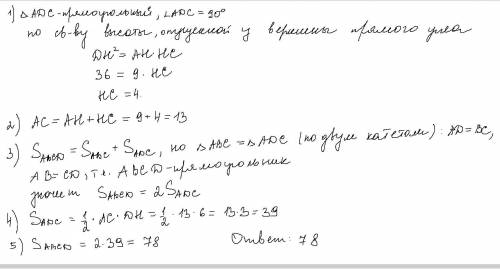 1) △ADC - прямоугольный, ∠ADC = 90°
по св-ву высоты, опущенной из вершины прямого угла
DH² = AH·HC
36 = 9·HC
HC = 4.
2) AC = AH + HC = 9 + 4 = 13
3) S_ABCD = S_ABC + S_ADC, но △ABC = △ADC (по двум катетам): AD = BC,
AB = CD, т.к. ABCD - прямоугольник
значит S_ABCD = 2S_ADC
4) S_ADC = 1/2 · AC · DH = 1/2 · 13 · 6 = 13·3 = 39
5) S_ABCD = 2·39 = 78 Ответ: 78